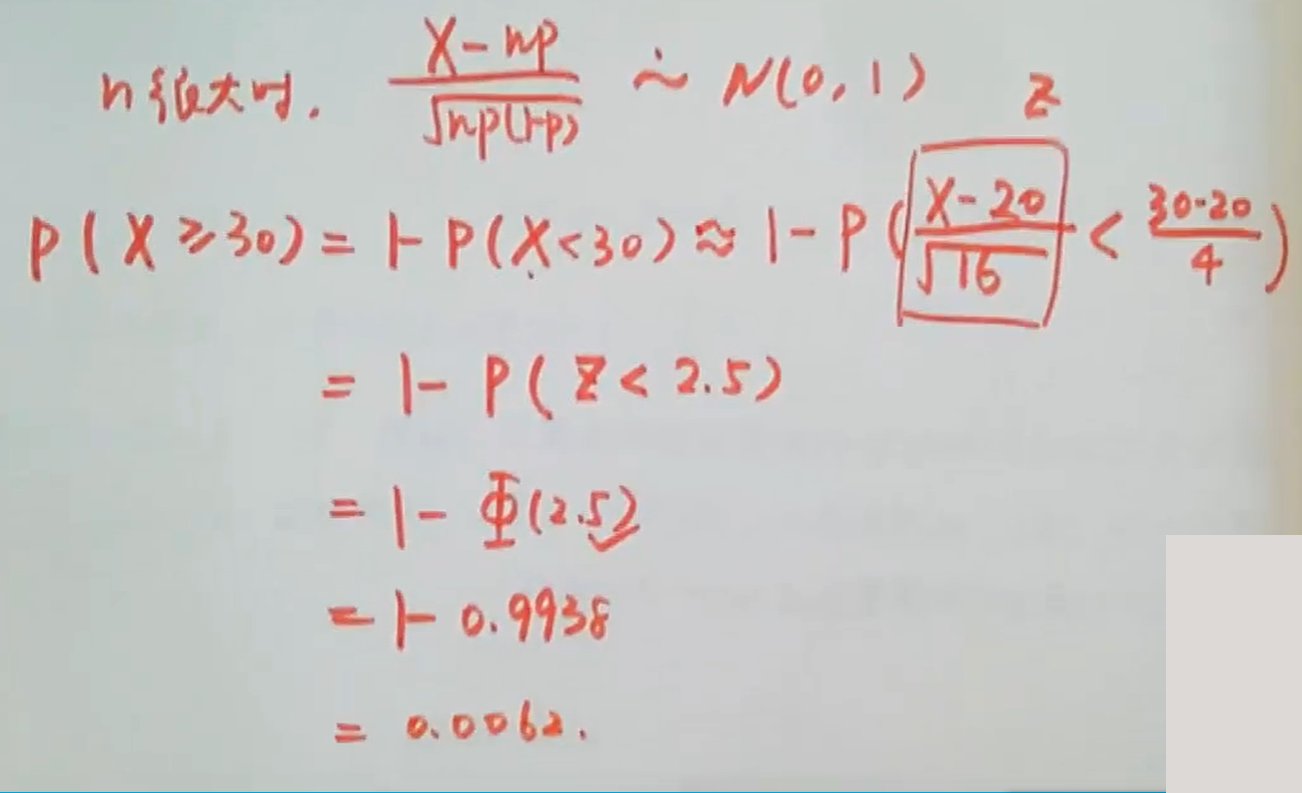 n很大时, (X-np)/√(np(1-p)) ∼̇ N(0,1) Z
P(X≥30)=1-P(X<30)≈1-P((X-20)/√16<(30-20)/4)
=1-P(Z<2.5)
=1-Φ(2.5)
=1-0.9938
=0.0062.